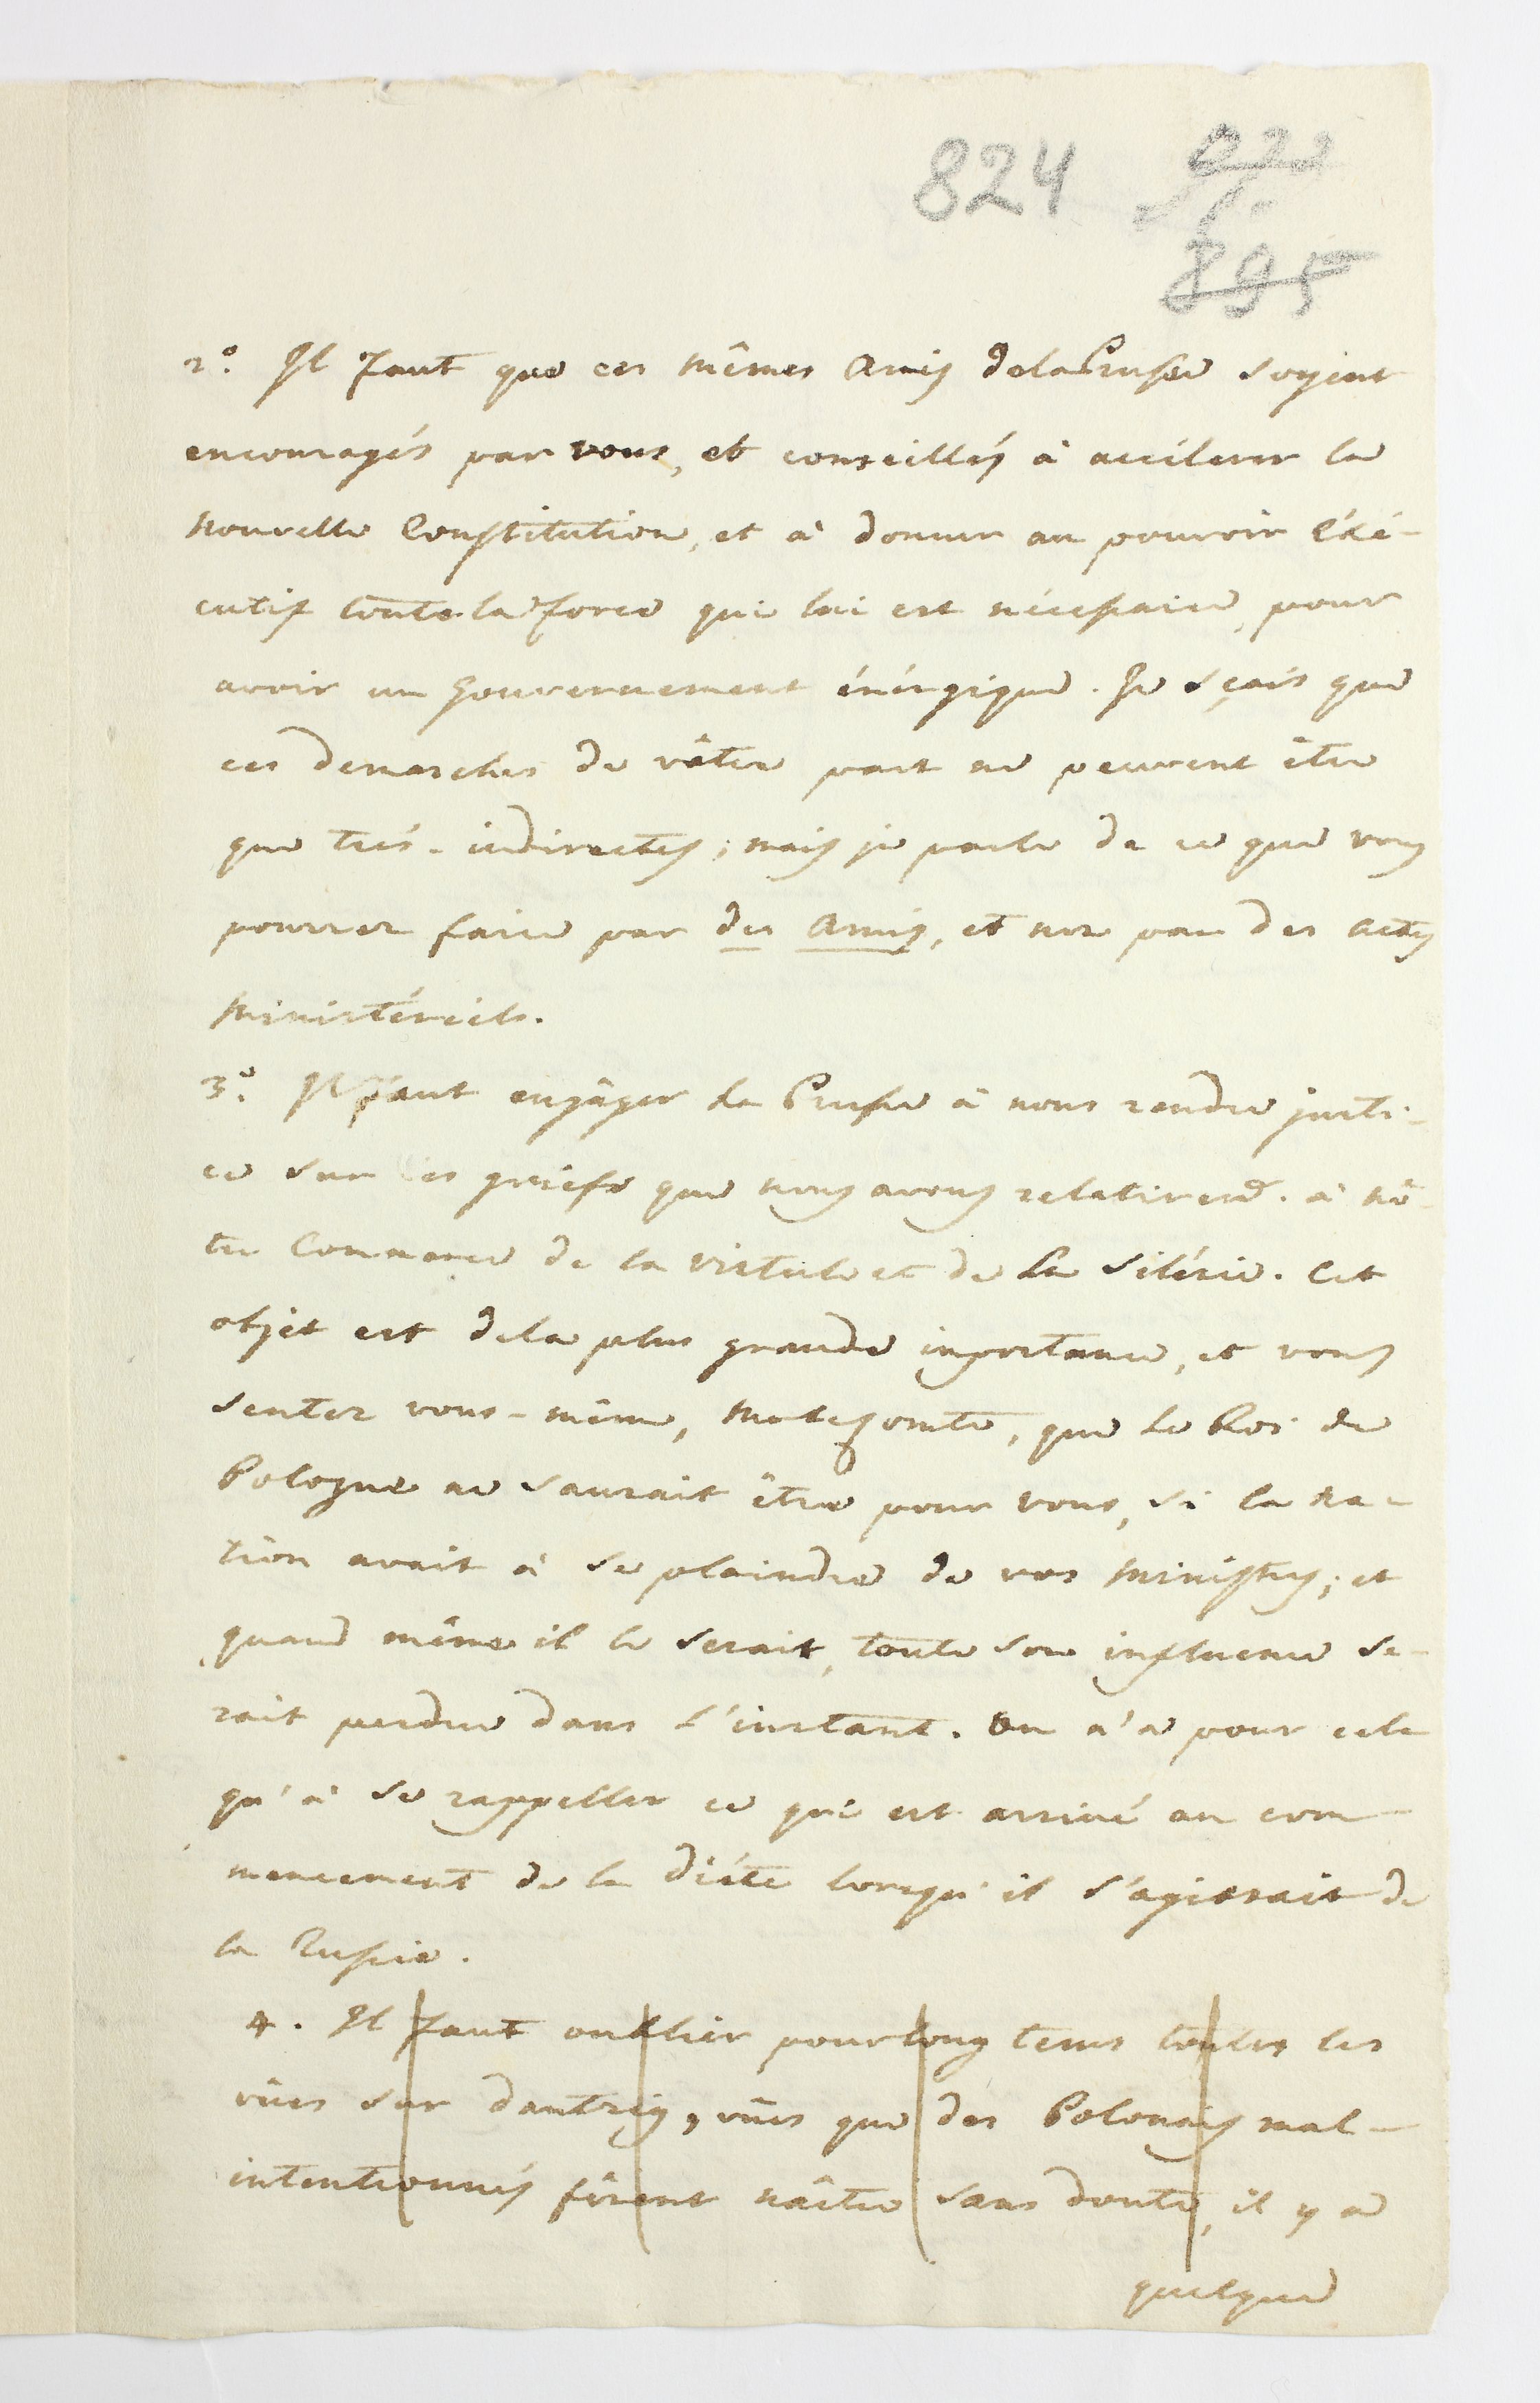 824
895
2.° Il faut que ces mêmes Amis de la Prusse soyent
encouragés par vous, et conseillés à accélerer la
nouvelle Constitution, et à donner au pouvoir Exé-
cutif toute la force qui lui est nécessaire, pour
avoir un gouvernement énérgique. Je sçais que
ces demarches de vôtre part ne peuvent être
que trés-indirectes; mais je parle de ce que vous
pourrez faire par des Amis, et non par des actes
ministériels.
3.° Il faut engâger la Prusse à nous rendre justi-
ce sur les griefs que nous avons relativem.t à nô-
tre Commerce de la Vistule et de la Silésie. Cet
objet est de la plus grande importance, et vous
sentez vous-même, que le Roi de
Pologne ne saurait être pour vous, si la na-
tion avait à se plaindre de vos Ministres; et
quand même il le serait, toute son influence se-
rait perdue dans l'instant. On n'a pour cela
qu'à se rappeller ce qui est arrivé au com-
mencement de la diéte lorsqu'il s'agissait de
la Russie.
4. Il faut oublier pour long tems toutes les
vües sur Dantzig, vües que des Polonais mal-
intentionnés firent naître sans doute, il y a
quelque